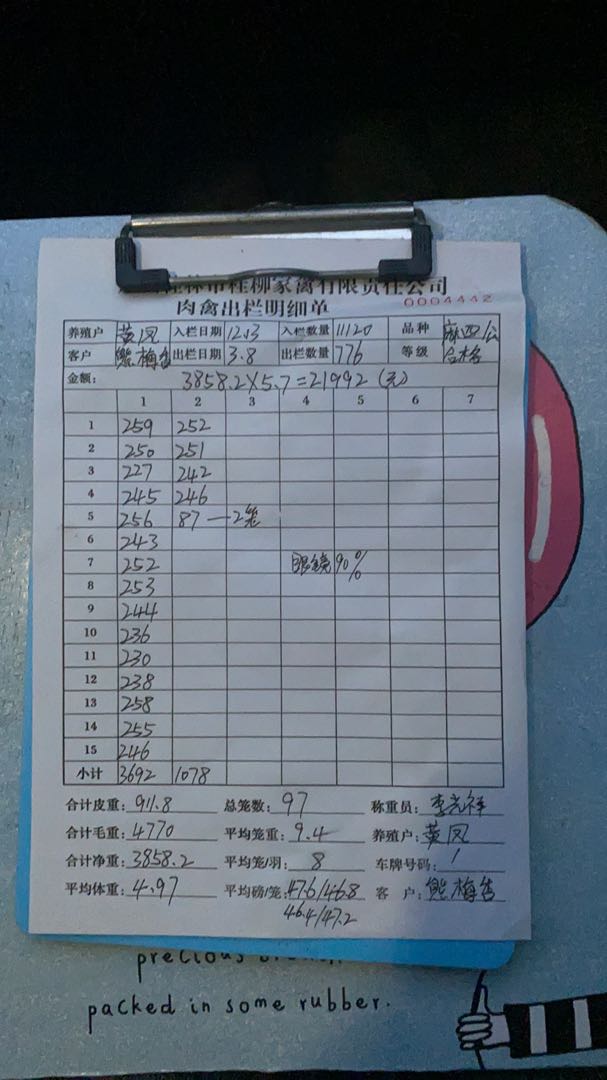 桂林市桂柳家禽有限责任公司
肉禽出栏明细单 0004442
养殖户 黄凤 入栏日期 12.13 入栏数量 11120 品种 麻四公
客户 熊梅香 出栏日期 3.8 出栏数量 776 等级 合格
金额: 3858.2×5.7=21992(元)
1 2 3 4 5 6 7
1 259 252
2 250 251
3 227 242
4 245 246
5 256 87—2笼
6 243
7 252 眼镜90%
8 253
9 244
10 236
11 230
12 238
13 258
14 255
15 246
小计 3692 1078
合计皮重: 911.8 总笼数: 97 称重员: 李光祥
合计毛重: 4770 平均笼重: 9.4 养殖户: 黄凤
合计净重: 3858.2 平均笼/羽: 8 车牌号码: /
平均体重: 4.97 平均磅/笼: 47.6/46.8 客户: 熊梅香
46.4/47.2
precious
packed in some rubber.